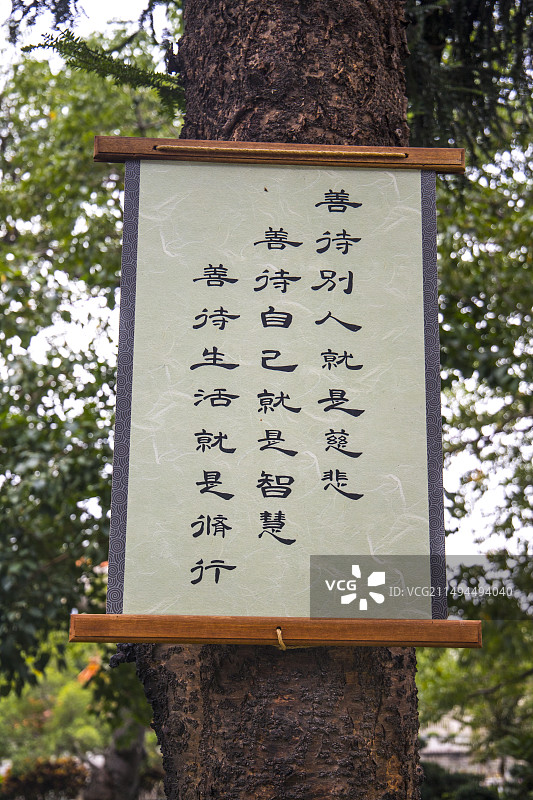 善待别人就是慈悲
善待自己就是智慧
善待生活就是脩行
VCG
ID:VCG211494494040